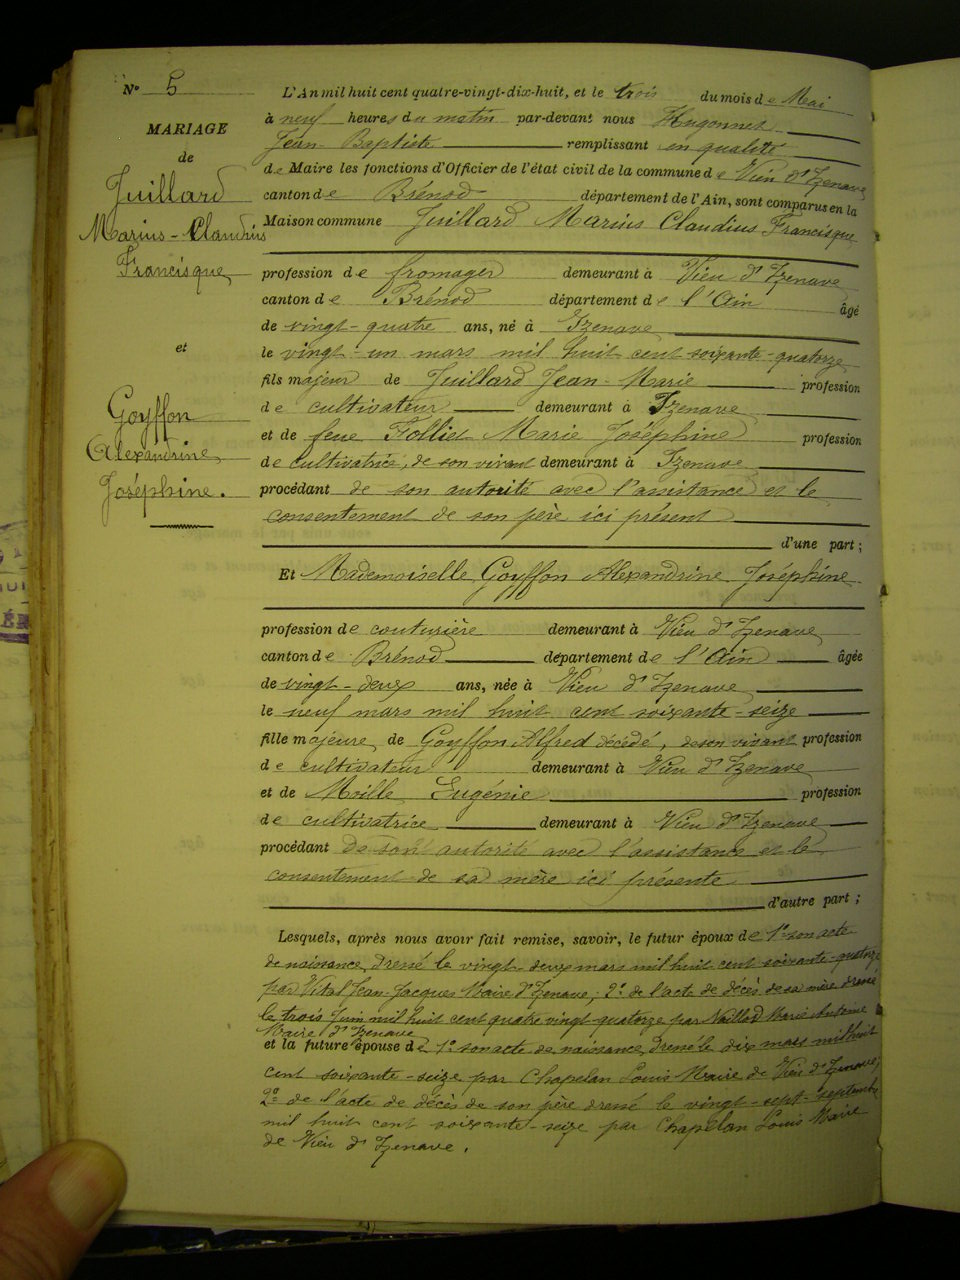 N° 5
MARIAGE
de
Juillard
Marius-Claudius
Francisque
et
Goyffon
Alexandrine
Joséphine.
L'An mil huit cent quatre-vingt-dix-huit, et le trois du mois de Mai
à neuf heures du matin par-devant nous Hugonnet
Jean-Baptiste remplissant en qualité
de Maire les fonctions d'Officier de l'état civil de la commune de Vieu d'Izenave
canton de Brénod département de l'Ain, sont comparus en la
Maison commune Juillard Marius Claudius Francisque
profession de fromager demeurant à Vieu d'Izenave
canton de Brénod département de l'Ain âgé
de vingt-quatre ans, né à Izenave
le vingt-un mars mil huit cent soixante-quatorze
fils majeur de Juillard Jean-Marie profession
de cultivateur demeurant à Izenave
et de feue Folliet Marie Joséphine profession
de cultivatrice, de son vivant demeurant à Izenave
procédant de son autorité avec l'assistance et le
consentement de son père ici présent
d'une part ;
Et Mademoiselle Goyffon Alexandrine Joséphine
profession de couturière demeurant à Vieu d'Izenave
canton de Brénod département de l'Ain âgée
de vingt-deux ans, née à Vieu d'Izenave
le neuf mars mil huit cent soixante-seize
fille majeure de Goyffon Alfred décédé, de son vivant profession
de cultivateur demeurant à Vieu d'Izenave
et de Moille Eugénie profession
de cultivatrice demeurant à Vieu d'Izenave
procédant de son autorité avec l'assistance et le
consentement de sa mère ici présente
d'autre part ;
Lesquels, après nous avoir fait remise, savoir, le futur époux de 1° son acte
de naissance, dressé le vingt-deux mars mil huit cent soixante-quatorze
par Vital Jean-Jacques Maire d'Izenave ; 2° de l'acte de décès de sa mère dressé
le trois Juin mil huit cent quatre vingt-quatorze par Maillod Marie Antoine
Maire d'Izenave
et la future épouse de 1° son acte de naissance, dressé le dix mars mil huit
cent soixante-seize par Chapelan Louis Maire de Vieu d'Izenave ;
2° de l'acte de décès de son père dressé le vingt-sept septembre
mil huit cent soixante-seize par Chapelan Louis Maire
de Vieu d'Izenave.